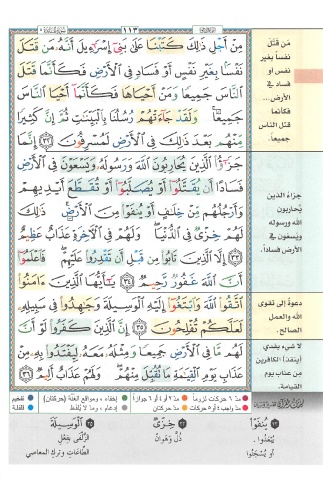 ١١٣
مِنْ أَجْلِ ذَٰلِكَ كَتَبْنَا عَلَىٰ بَنِىٓ إِسْرَٰٓءِيلَ أَنَّهُۥ مَن قَتَلَ
نَفْسًۢا بِغَيْرِ نَفْسٍ أَوْ فَسَادٍ فِى ٱلْأَرْضِ فَكَأَنَّمَا قَتَلَ
ٱلنَّاسَ جَمِيعًا وَمَنْ أَحْيَاهَا فَكَأَنَّمَآ أَحْيَا ٱلنَّاسَ
جَمِيعًا ۚ وَلَقَدْ جَآءَتْهُمْ رُسُلُنَا بِٱلْبَيِّنَٰتِ ثُمَّ إِنَّ كَثِيرًا
مِّنْهُم بَعْدَ ذَٰلِكَ فِى ٱلْأَرْضِ لَمُسْرِفُونَ ﴿٣٢﴾ إِنَّمَا
جَزَٰٓؤُا۟ ٱلَّذِينَ يُحَارِبُونَ ٱللَّهَ وَرَسُولَهُۥ وَيَسْعَوْنَ فِى ٱلْأَرْضِ
فَسَادًا أَن يُقَتَّلُوٓا۟ أَوْ يُصَلَّبُوٓا۟ أَوْ تُقَطَّعَ أَيْدِيهِمْ
وَأَرْجُلُهُم مِّنْ خِلَٰفٍ أَوْ يُنفَوْا۟ مِنَ ٱلْأَرْضِ ۚ ذَٰلِكَ
لَهُمْ خِزْىٌ فِى ٱلدُّنْيَا ۖ وَلَهُمْ فِى ٱلْءَاخِرَةِ عَذَابٌ عَظِيمٌ
﴿٣٣﴾ إِلَّا ٱلَّذِينَ تَابُوا۟ مِن قَبْلِ أَن تَقْدِرُوا۟ عَلَيْهِمْ ۖ فَٱعْلَمُوٓا۟
أَنَّ ٱللَّهَ غَفُورٌ رَّحِيمٌ ﴿٣٤﴾ يَٰٓأَيُّهَا ٱلَّذِينَ ءَامَنُوا۟
ٱتَّقُوا۟ ٱللَّهَ وَٱبْتَغُوٓا۟ إِلَيْهِ ٱلْوَسِيلَةَ وَجَٰهِدُوا۟ فِى سَبِيلِهِۦ
لَعَلَّكُمْ تُفْلِحُونَ ﴿٣٥﴾ إِنَّ ٱلَّذِينَ كَفَرُوا۟ لَوْ أَنَّ
لَهُم مَّا فِى ٱلْأَرْضِ جَمِيعًا وَمِثْلَهُۥ مَعَهُۥ لِيَفْتَدُوا۟ بِهِۦ مِنْ
عَذَابِ يَوْمِ ٱلْقِيَٰمَةِ مَا تُقُبِّلَ مِنْهُمْ ۖ وَلَهُمْ عَذَابٌ أَلِيمٌ ﴿٣٦﴾
من قتل
نفساً بغير
نفس أو
فساد في
الأرض...
فكأنما
قتل الناس
جميعاً.
جزاء الذين
يُحاربون
الله ورسوله
ويسعون في
الأرض فساداً.
دعوة إلى تقوى
الله والعمل
الصالح.
لا شيء يفدي
(ينقذ) الكافرين
من عذاب يوم
القيامة.
مد ٦ حركات لزوماً
مد ٢ أو ٤ أو ٦ جوازاً
إخفاء، ومواقع الغنة (حركتان)
تفخيم
مد واجب ٤ أو ٥ حركات
مد حركتان
إدغام، وما لا يُلفظ
قلقلة
٣٣ يُنفَوْا
يُبْعَدُوا.
أو يُسْجَنُوا
٣٣ خِزْيٌ
ذُلٌّ وَهَوَانٌ
٣٥ الْوَسِيلَةَ
الزُّلْفَى بِفِعْلِ
الطَّاعَاتِ وتركِ المعاصي